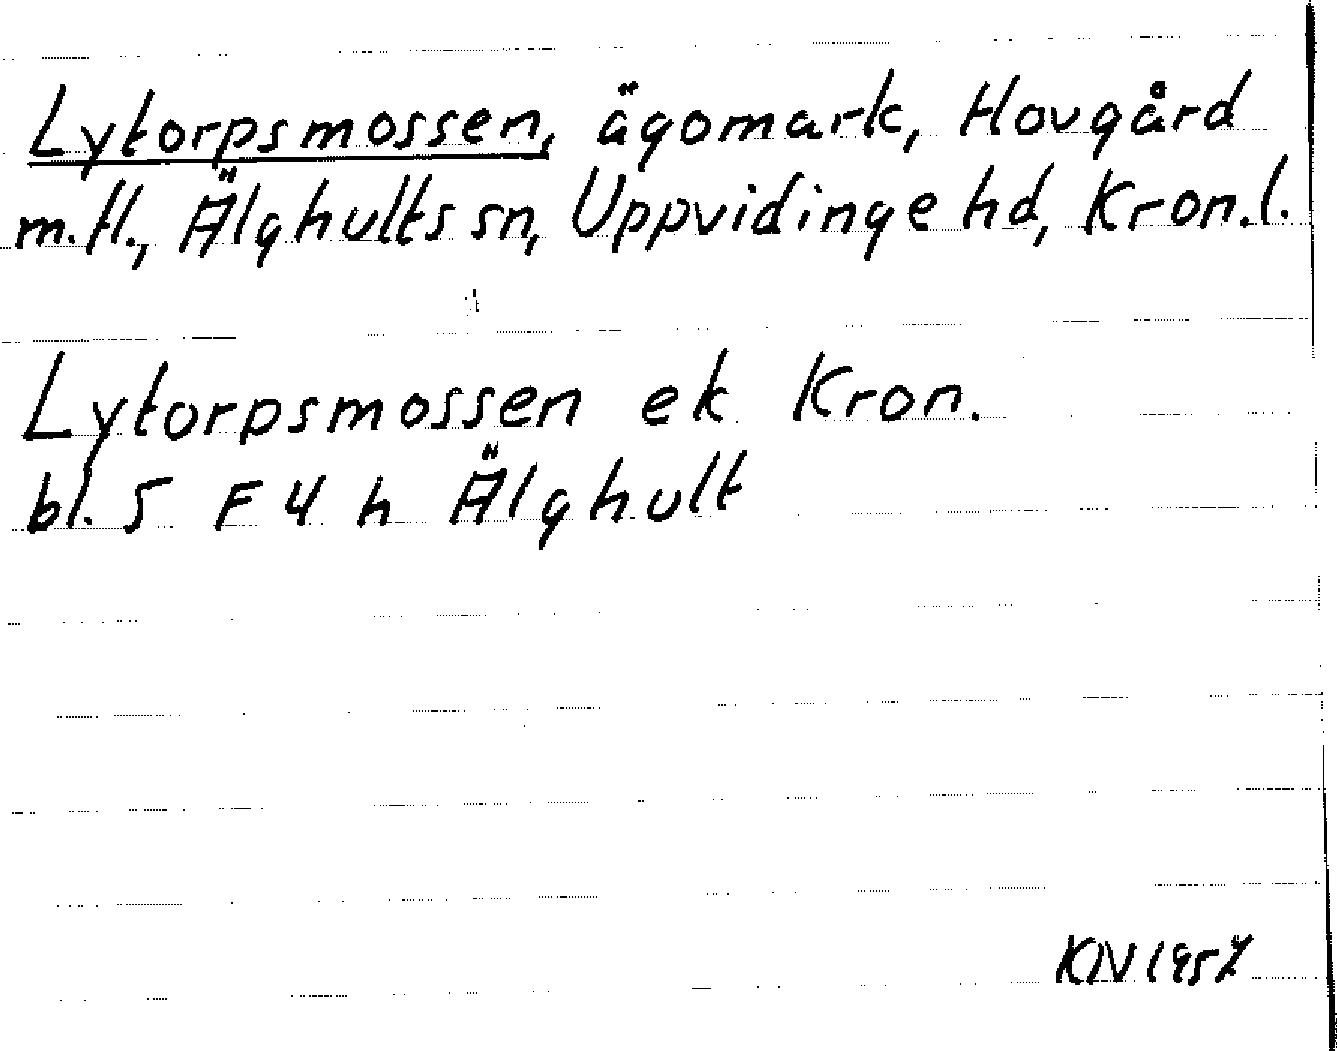 Lytorpsmossen, ägomark, Hovgård
m.fl., Älghults sn, Uppvidinge hd, Kron.l.
Lytorpsmossen ek Kron.
bl. 5 F 4 h Älghult
KN 1957